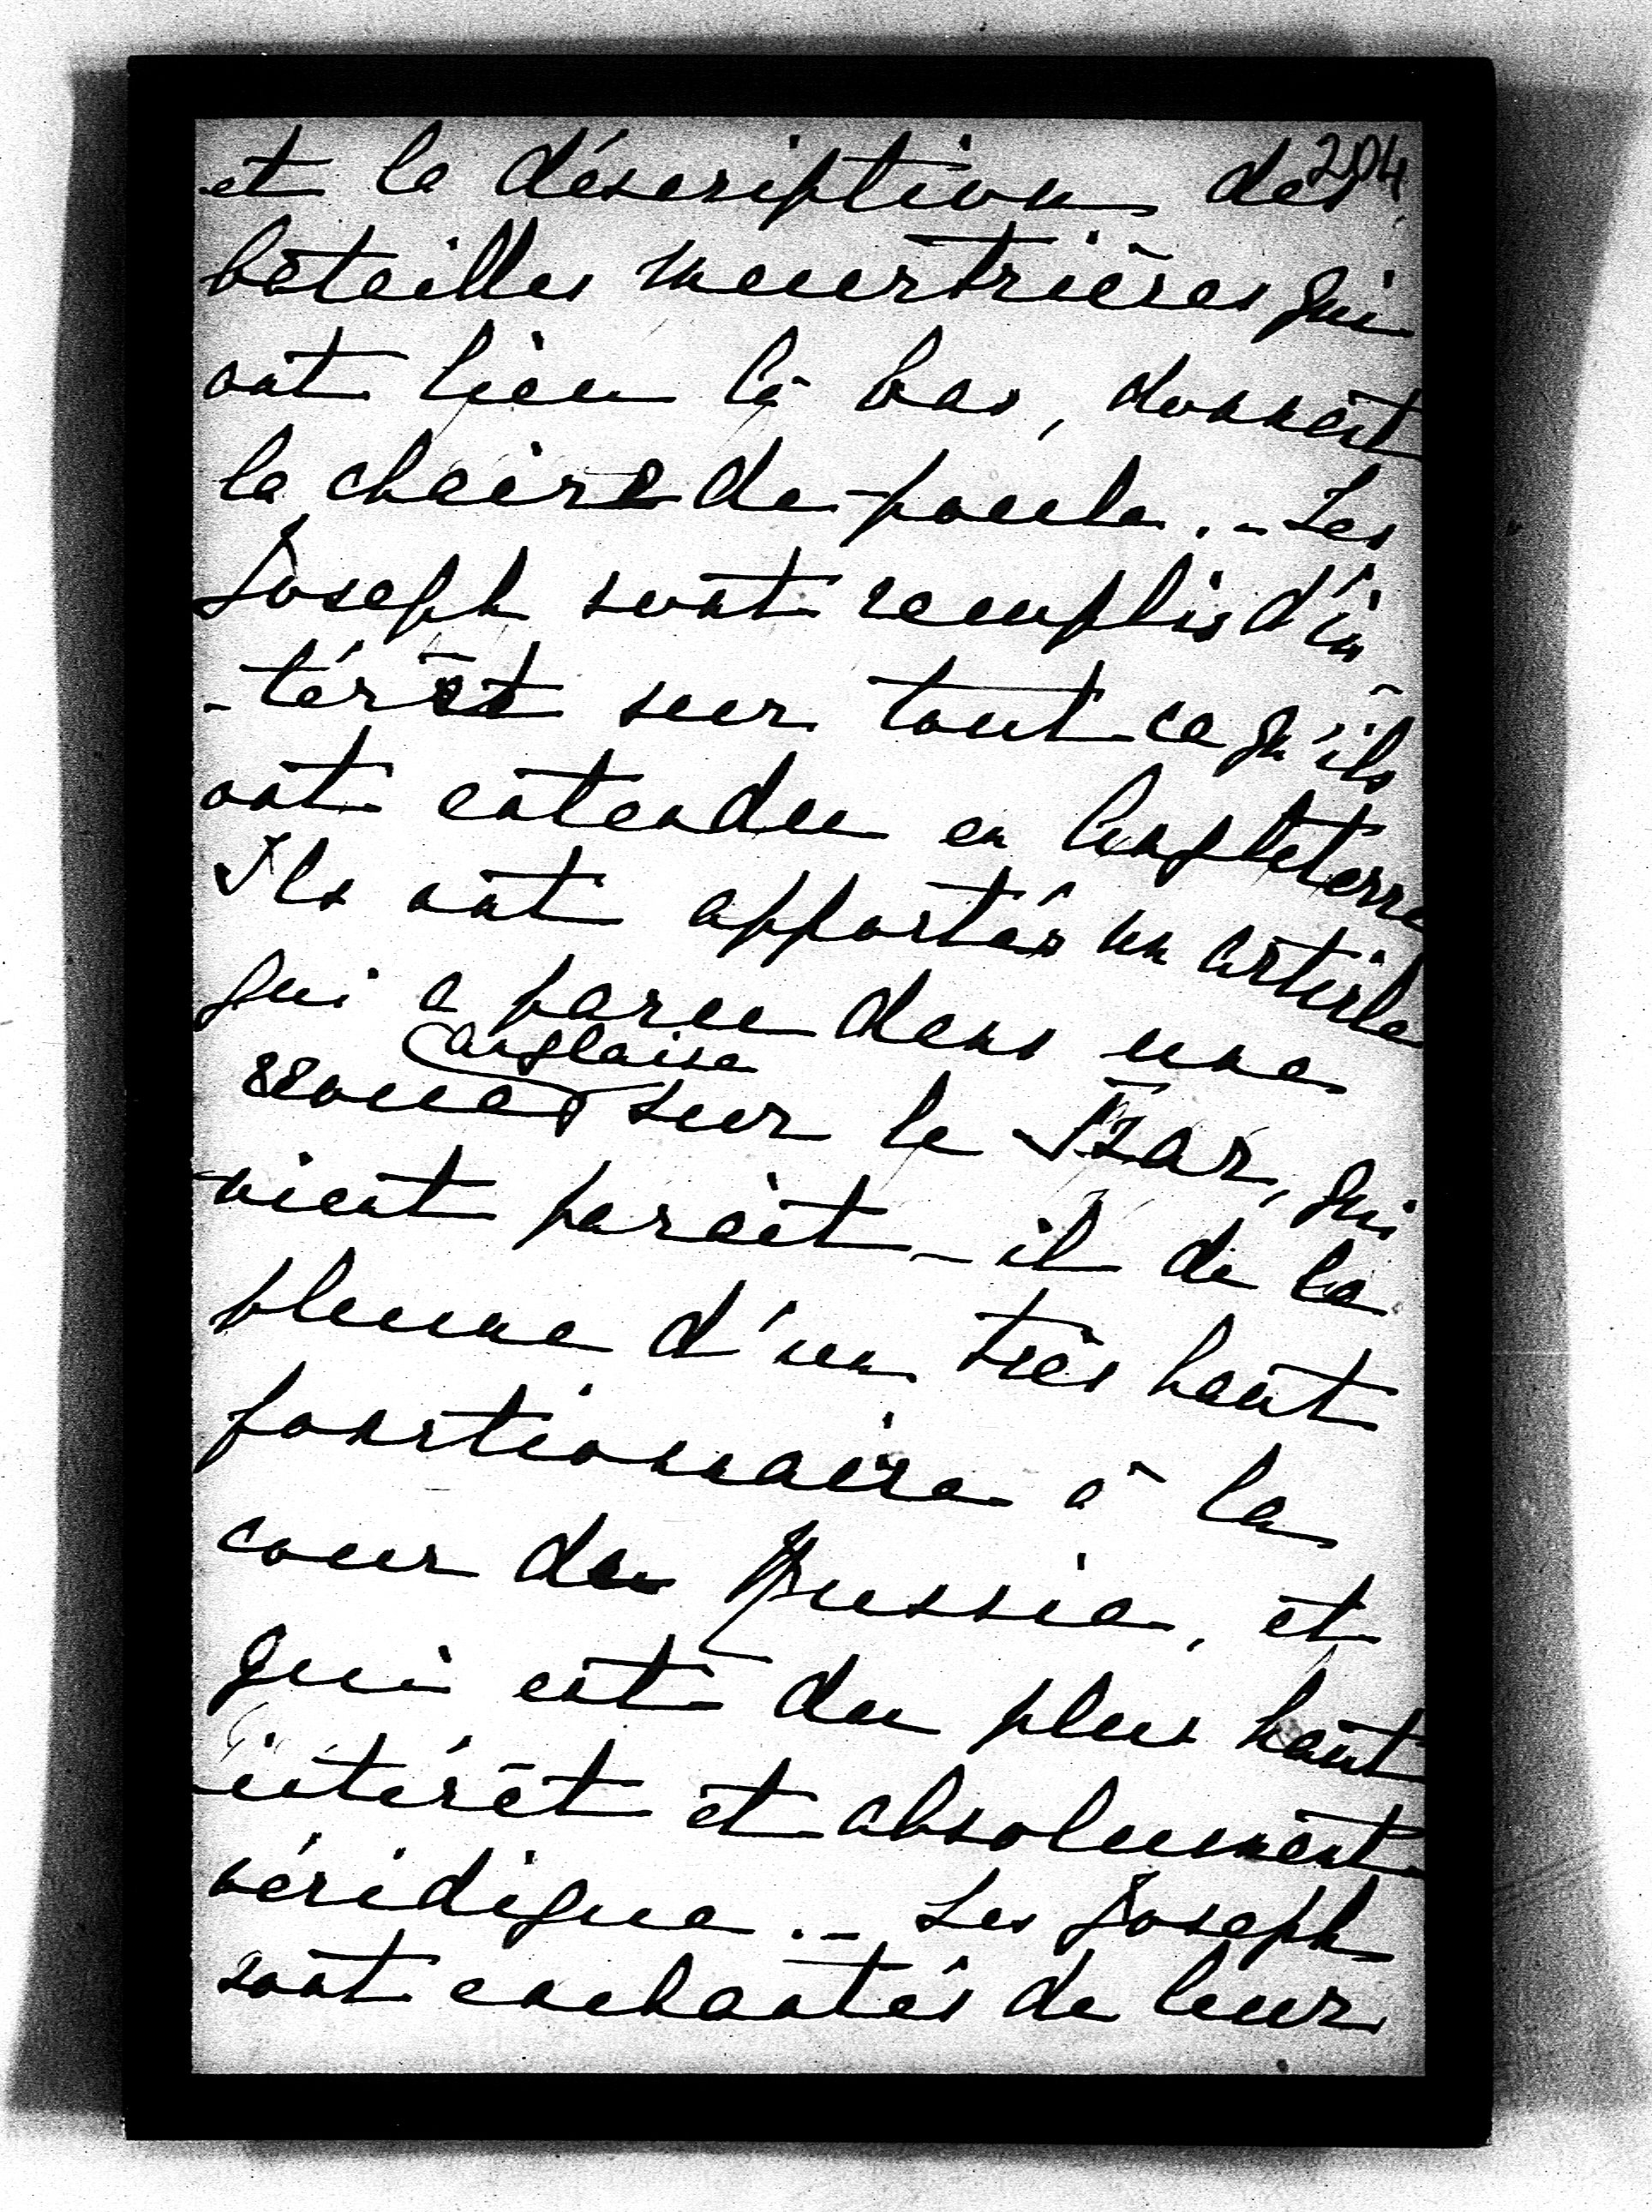 204
et la déscription des
batailles meurtrières qui
ont lieu là bas, donnent
la chaire de poule. - Les
Joseph sont remplis d'in-
-térêt sur tout ce qu'ils
ont entendu en Angleterre
Ils ont apportés un article
qui a paru dans une
anglaise
revue sur le Tzar, qui
vient parait-il de la
plume d'un très haut
fonctionnaire à la
cour de Russie, et
qui est du plus haut
intérêt et absolument
véridique. - Les Joseph
sont enchantés de leur